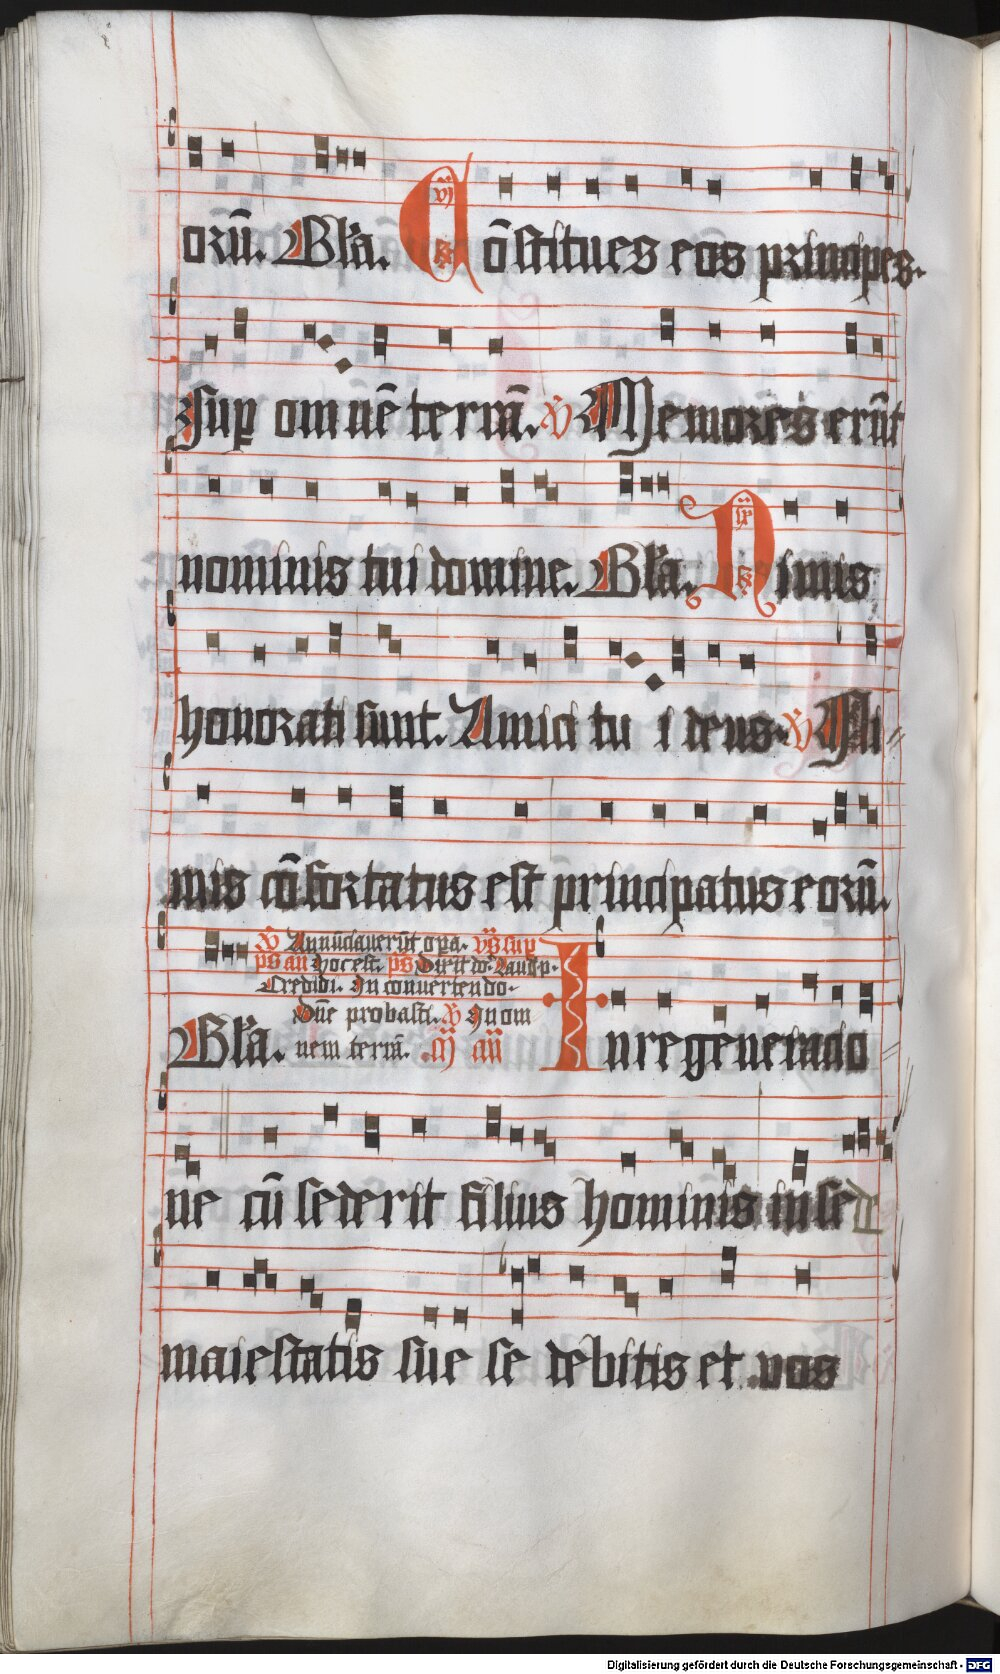 orū. Gl'a. vi Cōstitues eos principes.
sup omnē terrā. V Memores erūt
nominis tui domine. Gl'a. ix Nimis
honorati sunt. Amici tui deus. V Ni
mis cōfortatus est principatus eorū.
V Annūciauerūt opa.
ps an hoc est. ps Dixit
Credidi. In conuertendo.
Dn̄e probasti. V In om
Gl'a. nem terrā. In regeneracio
ne cū sederit filius hominis in sede
maiestatis sue sedebitis et vos
Digitalisierung gefördert durch die Deutsche Forschungsgemeinschaft - DFG